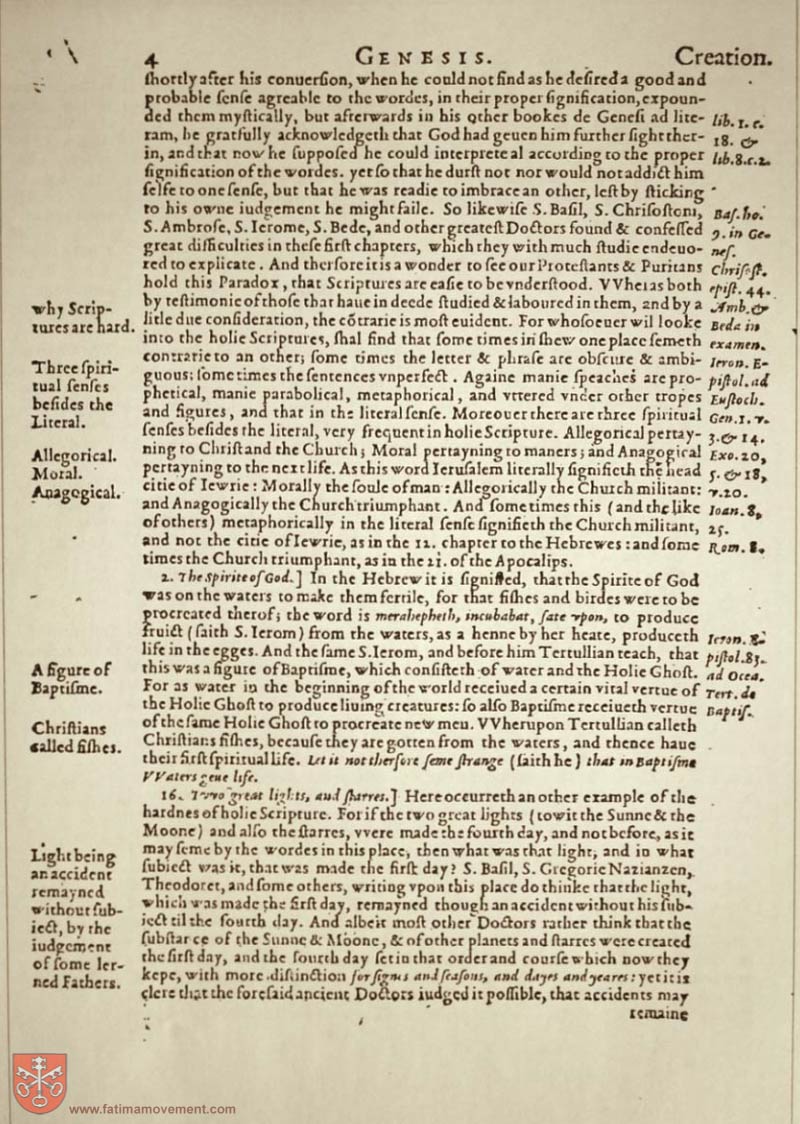 4 GENESIS. Creation.
ſhortly after his conuerſion, when he could not find as he deſired a good and
probable ſenſe agreable to the wordes, in their proper ſignification, expoun-
ded them myſtically, but afterwards in his other bookes de Geneſi ad lite-
ram, he gratfully acknowledgeth that God had geuen him further ſight ther-
in, and that now he ſuppoſed he could interprete al according to the proper
ſignification of the wordes. yet ſo that he durſt not nor would not addict him
ſelfe to one ſenſe, but that he was readie to imbrace an other, leſt by ſticking
to his owne iudgement he might faile. So likewiſe S. Baſil, S. Chriſoſtom,
S. Ambroſe, S. Ierome, S. Bede, and other greateſt Doctors found & confeſſed
great difficulties in theſe firſt chapters, which they with much ſtudie endeuo-
red to explicate. And therfore it is a wonder to ſee our Proteſtants & Puritans
hold this Paradox, that Scriptures are eaſie to be vnderſtood. VVheras both
by teſtimonie of thoſe that haue in deede ſtudied & laboured in them, and by a
litle due conſideration, the cõtrarie is moſt euident. For whoſoeuer wil looke
into the holie Scriptures, ſhal find that ſome times in ſhew one place ſemeth
contrarie to an other; ſome times the letter & phraſe are obſcure & ambi-
guous; ſome times the ſentences vnperfect. Againe manie ſpeaches are pro-
phetical, manie parabolical, metaphorical, and vttered vnder other tropes
and figures, and that in the literal ſenſe. Moreouer there are three ſpiritual
ſenſes beſides the literal, very frequent in holie Scripture. Allegorical pertay-
ning to Chriſt and the Church; Moral pertayning to maners; and Anagogical
pertayning to the next life. As this word Ieruſalem literally ſignifieth the head
citie of Iewrie: Morally the ſoule of man: Allegorically the Church militant:
and Anagogically the Church triumphant. And ſome times this (and the like
of others) metaphorically in the literal ſenſe ſignifieth the Church militant,
and not the citie of Iewrie, as in the 12. chapter to the Hebrewes: and ſome
times the Church triumphant, as in the 21. of the Apocalips.
2. The Spirite of God.] In the Hebrew it is ſignified, that the Spirite of God
was on the waters to make them fertile, for that fiſhes and birdes were to be
procreated therof; the word is merahepheth, incubabat, ſate vpon, to produce
fruict (ſaith S. Ierom) from the waters, as a henne by her heate, produceth
life in the egges. And the ſame S. Ierom, and before him Tertullian teach, that
this was a figure of Baptiſme, which conſiſteth of water and the Holie Ghoſt.
For as water in the beginning of the world receiued a certain vital vertue of
the Holie Ghoſt to produce liuing creatures: ſo alſo Baptiſme receiueth vertue
of the ſame Holie Ghoſt to procreate new men. VVherupon Tertullian calleth
Chriſtians fiſhes, becauſe they are gotten from the waters, and thence haue
their firſt ſpiritual life. Let it not therfore ſeme ſtrange (ſaith he) that in Baptiſme
VVaters geue life.
16. Two great lights, and ſtarres.] Here occurreth an other example of the
hardnes of holie Scripture. For if the two great lights (to wit the Sunne & the
Moone) and alſo the ſtarres, vvere made the fourth day, and not before, as it
may ſeme by the wordes in this place, then what was that light, and in what
ſubiect was it, that was made the firſt day? S. Baſil, S. Gregorie Nazianzen,
Theodoret, and ſome others, writing vpon this place do thinke that the light,
which was made the firſt day, remayned though an accident without his ſub-
iect til the fourth day. And albeit moſt other Doctors rather think that the
ſubſtance of the Sunne & Moone, & of other planets and ſtarres were created
the firſt day, and the fourth day ſet in that order and courſe which now they
kepe, with more diſtinction for ſignes and ſeaſons, and dayes and yeares: yet it is
clere that the foreſaid ancient Doctors iudged it poſſible, that accidents may
remaine
why Scrip-
tures are hard.
Three ſpiri-
tual ſenſes
beſides the
Literal.
Allegorical.
Moral.
Anagogical.
A figure of
Baptiſme.
Chriſtians
called fiſhes.
Light being
an accident
remayned
without ſub-
iect, by the
iudgement
of ſome ler-
ned Fathers.
lib. 1. c.
18. &
lib. 8. c. 2.
Baſ. ho.
9. in Ge-
neſ.
Chriſoſt.
epiſt. 44.
Amb. &
Beda in
examen.
Ieron. E-
piſtol. ad
Euſtoch.
Gen. 1. v.
3. & 14.
Exo. 20,
5. & 18,
v. 20.
Ioan. 8,
25.
Rom. 8.
Ieron. E-
piſtol. 83.
ad Ocea.
Tert. de
Baptiſ.
www.fatimamovement.com